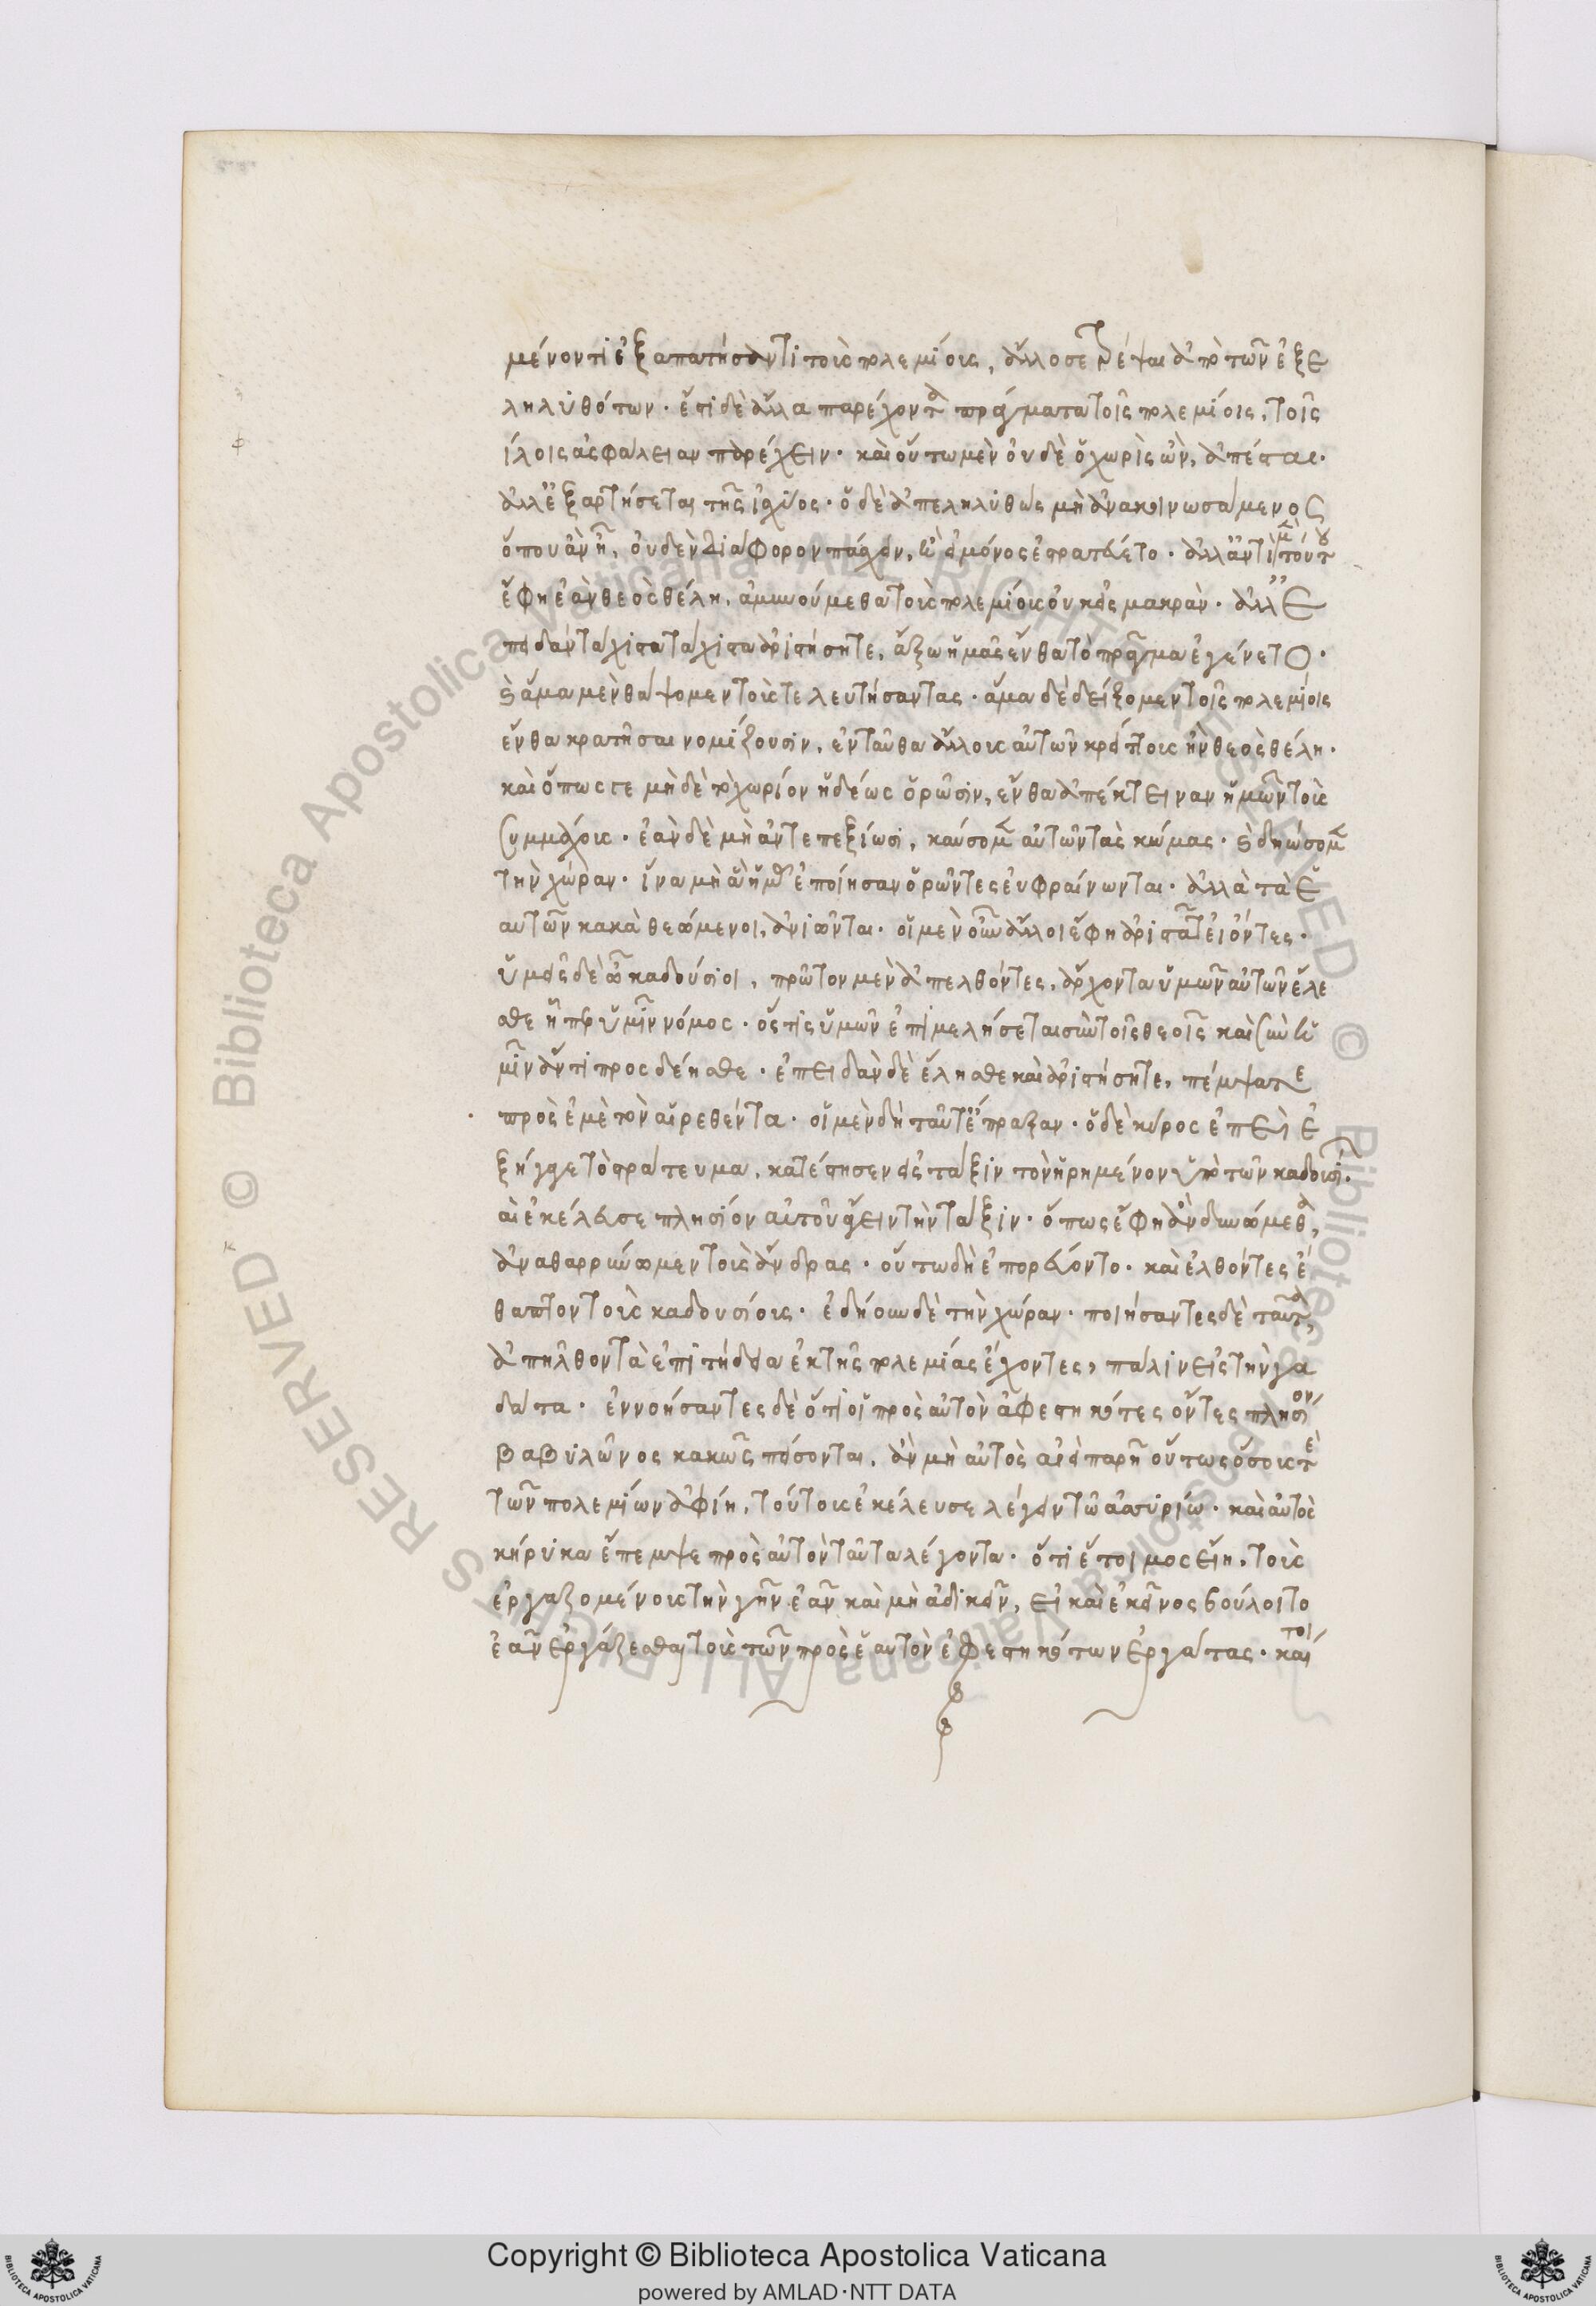 μένοντι ἐξαπατήσαντι τοὺς πολεμίους, ἄλλοσε τρέψαι ἀπὸ τῶν ἐξε
ληλυθότων· ἔστι δὲ ἄλλα παρέχοντα πράγματα τοῖς πολεμίοις, τοῖς
ίλοις ἀσφάλειαν παρέχειν· καὶ οὕτω μὲν οὐδὲ ὁ χωρὶς ὢν, ἀπέσται·
ἀλλ' ἐξαρτήσεται τῆς ἰσχύος· ὁ δὲ ἀπεληλυθὼς μὴ ἀνακοινωσάμενος
ὅπου ἂν ᾖ, οὐδὲν διάφορον πάσχειν, ἢ εἰ μόνος ἐστρατεύετο· ἀλλ' ἀντὶ μὲν τούτου
ἔφη ἐὰν θεὸς θέλη, ἀμυνούμεθα τοὺς πολεμίους οὐκ εἰς μακράν· ἀλλ' ἐ
πειδὰν τάχιστα τάχιστα ἀριστήσητε, ἄξω ὑμᾶς ἔνθα τὸ πρᾶγμα ἐγένετο·
καὶ ἅμα μὲν θάψομεν τοὺς τελευτήσαντας· ἅμα δὲ δείξομεν τοῖς πολεμίοις
ἔνθα κρατῆσαι νομίζουσιν, ἐνταῦθα ἄλλους αὐτῶν κρείττους ἢν θεὸς θέλη·
καὶ ὅπως τε μηδὲ τὸ χωρίον ἡδέως ὁρῶσιν, ἔνθα ἀπέκτειναν ἡμῶν τοὺς
συμμάχους· ἐὰν δὲ μὴ ἀντεπεξίωσι, καύσομεν αὐτῶν τὰς κώμας· καὶ δηώσομεν
τὴν χώραν· ἵνα μὴ ἃ ἡμᾶς ἐποίησαν ὁρῶντες εὐφραίνωνται· ἀλλὰ τὰ ἑ
αυτῶν κακὰ θεώμενοι, ἀνιῶνται· οἱ μὲν οὖν ἄλλοι ἔφη ἀριστᾶτε ἰόντες·
ὑμεῖς δὲ ὦ καδούσιοι, πρῶτον μὲν ἀπελθόντες, ἄρχοντα ὑμῶν αὐτῶν ἕλε
σθε ᾗπερ ὑμῖν νόμος· ὅστις ὑμῶν ἐπιμελήσεται σὺν τοῖς θεοῖς καὶ σὺν ἡ
μῖν ἄν τι προσδέησθε· ἐπειδὰν δὲ ἕλησθε καὶ ἀριστήσητε, πέμψατε
πρὸς ἐμὲ τὸν αἱρεθέντα· οἱ μὲν δὴ ταῦτ' ἔπραξαν· ὁ δὲ κύρος ἐπεὶ ἐ
ξήγαγε τὸ στράτευμα, κατέστησεν εἰς τάξιν τὸν ᾑρημένον ὑπὸ τῶν καδουσίων·
αὶ ἐκέλευσε πλησίον αὑτοῦ ἄγειν τὴν τάξιν· ὅπως ἔφη ἂν δυνώμεθα,
ἀναθαρρύνωμεν τοὺς ἄνδρας· οὕτω δὴ ἐπορεύοντο· καὶ ἐλθόντες ἔ
θαπτον τοὺς καδουσίους· ἐδήουν δὲ τὴν χώραν· ποιήσαντες δὲ ταῦτα,
ἀπῆλθον τὰ ἐπιτήδεια ἐκ τῆς πολεμίας ἔχοντες, πάλιν εἰς τὴν γα
δάτα· ἐννοήσαντες δὲ ὅτι οἱ πρὸς αὐτὸν ἀφεστηκότες ὄντες πλησίον
βαβυλῶνος κακῶς πείσονται, ἂν μὴ αὐτὸς ἀεὶ παρῇ οὕτως ὅσους τὲ
τῶν πολεμίων ἀφίη, τούτους ἐκέλευσε λέγειν τῷ ἀσσυρίῳ· καὶ αὐτὸς
κήρυκα ἔπεμψε πρὸς αὐτὸν ταῦτα λέγοντα· ὅτι ἕτοιμος εἴη, τοὺς
ἐργαζομένους τὴν γῆν ἐᾶν καὶ μὴ ἀδικεῖν, εἰ καὶ ἐκεῖνος βούλοιτο
ἐᾶν ἐργάζεσθαι τοὺς τῶν πρὸς ἑαυτὸν ἐφεστηκότων ἐργάτας· καίτοι